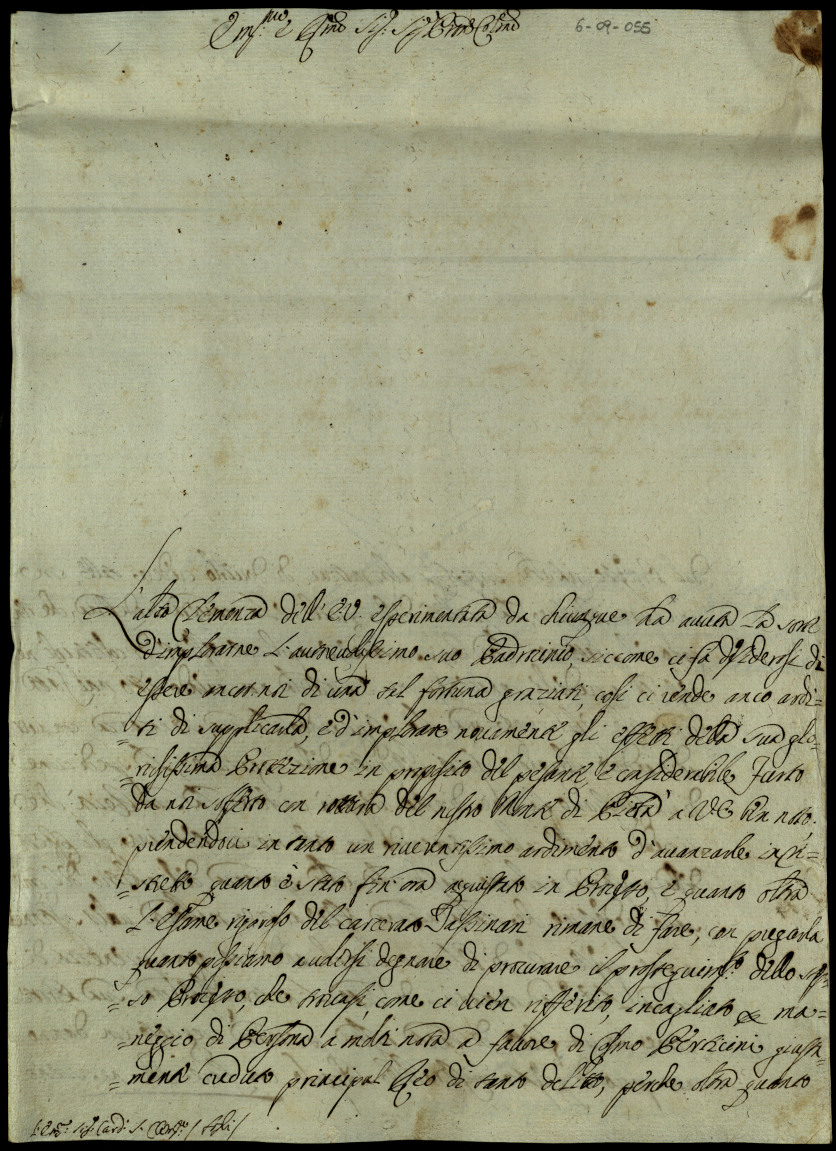 Em.mo e Rmo Sig.r Sig.r Pron Colmo
6-09-055
L'alta Clemenza dell' E.V. esperimentata da chiunque ha avuta la sorte
d'implorarne l'autorevolissimo suo Padrocinio, siccome ci fa desiderosi di
essere ancor noi di una tal fortuna graziati, così ci rende anco ardi=
=ti di supplicarla, e d'implorare novamente gli effetti della sua glo=
=riosissima Protezione in proposito del pesante, e considerabile Furto
da noi sofferto con rottura del nostro Monte di Pietà a V.E. ben noto.
prendendoci in tanto un riverentissimo ardimento d'avanzarle in ri=
=stretto quanto è stato fin ora acquistato in Processo, e quanto oltra
l'esame ripreso del carcerato Passinari rimane di fare, con pregarla
quanto possiamo a volersi degnare di procurare il proseguim.to dello stes=
=so Processo, che trovasi, come ci vien rifferito, incagliato per ma=
=neggio di Persona a molti nota a favore di Cosmo Perticini giusta=
=mente creduto principal Reo di tanto delitto, perche oltra quanto
Sig.r Card.